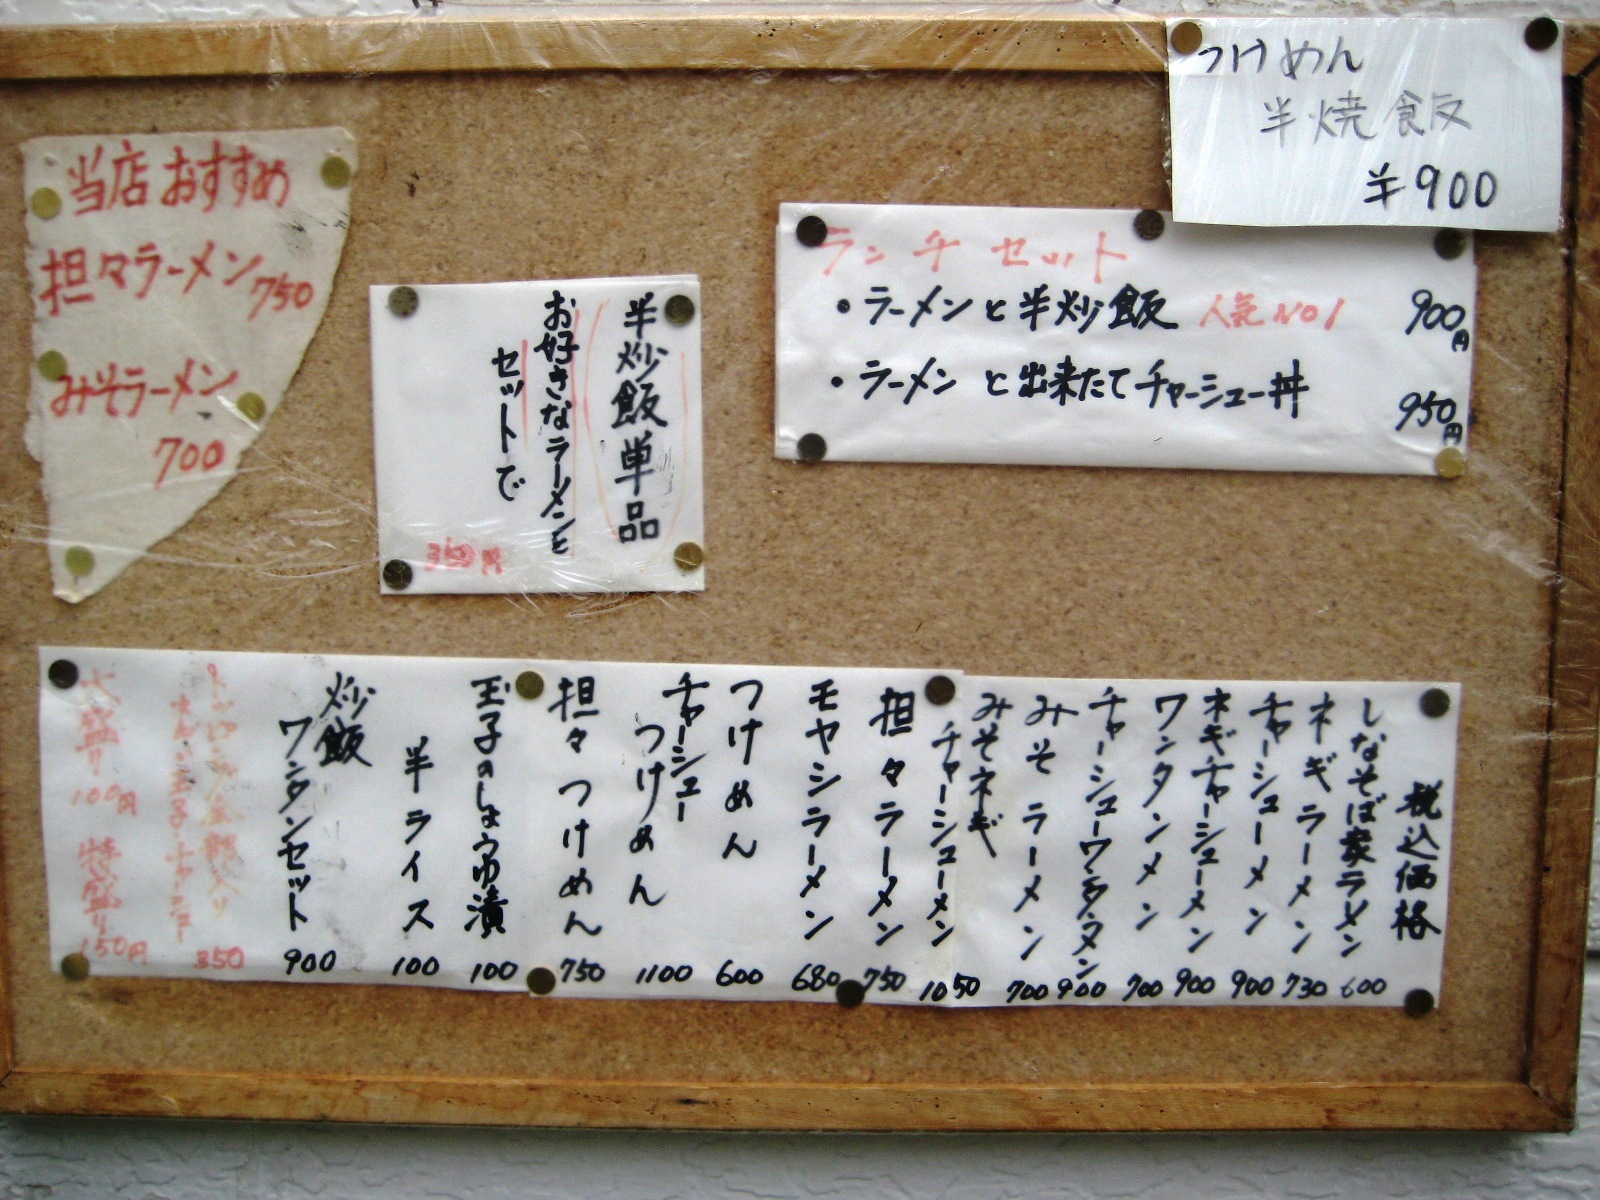 つけめん
半焼飯
¥900
当店おすすめ
担々ラーメン 750
みそラーメン
700
半炒飯単品
お好きなラーメンと
セットで
350円
ランチセット
・ラーメンと半炒飯 人気NO1 900円
・ラーメンと出来たてチャーシュー丼 950円
税込価格
しなそば家ラーメン 600
ネギラーメン 730
チャーシューメン 900
ネギチャーシューメン 900
ワンタンメン 700
チャーシューワンタンメン 900
みそラーメン 700
みそネギ
チャーシューメン 1050
担々ラーメン 750
モヤシラーメン 680
つけめん 600
チャーシュー
つけめん 1100
担々つけめん 750
玉子のしょうゆ漬 100
半ライス 100
炒飯
ワンタンセット 900
350
大盛り100円 特盛り150円